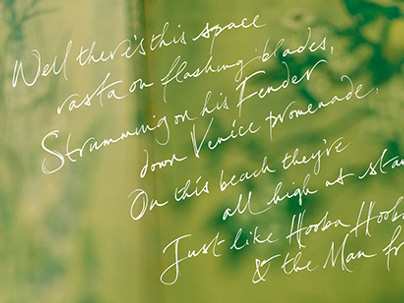 Well there's this space
rasta on flashing blades,
Strumming on his Fender
down Venice promenade,
On this beach they're
all high at
Just like Hooba
& the Man